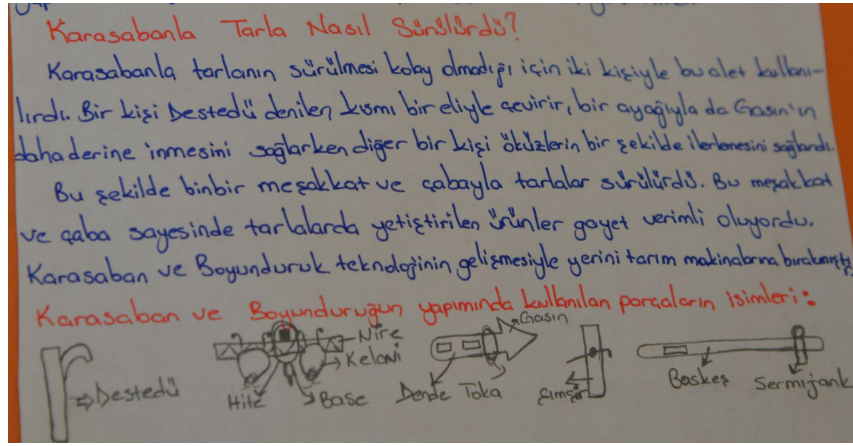 Karasabanla Tarla Nasıl Sürülürdü?
Karasabanla tarlanın sürülmesi kolay olmadığı için iki kişiyle bu alet kullanı-
lırdı. Bir kişi Destedü denilen kısmı bir eliyle çevirir, bir ayağıyla da Gasın'ın
daha derine inmesini sağlarken diğer bir kişi öküzlerin bir şekilde ilerlemesini sağlardı.
Bu şekilde binbir meşakkat ve çabayla tarlalar sürülürdü. Bu meşakkat
ve çaba sayesinde tarlalarda yetiştirilen ürünler gayet verimli oluyordu.
Karasaban ve Boyunduruk teknolojinin gelişmesiyle yerini tarım makinalarına bırakmıştı
Karasaban ve Boyunduruğun yapımında kullanılan parçaların isimleri:
Destedü
Nire
Kelavi
Hite
Base
Gasın
Dende
Toka
Şimşir
Baskeş
Sermijank